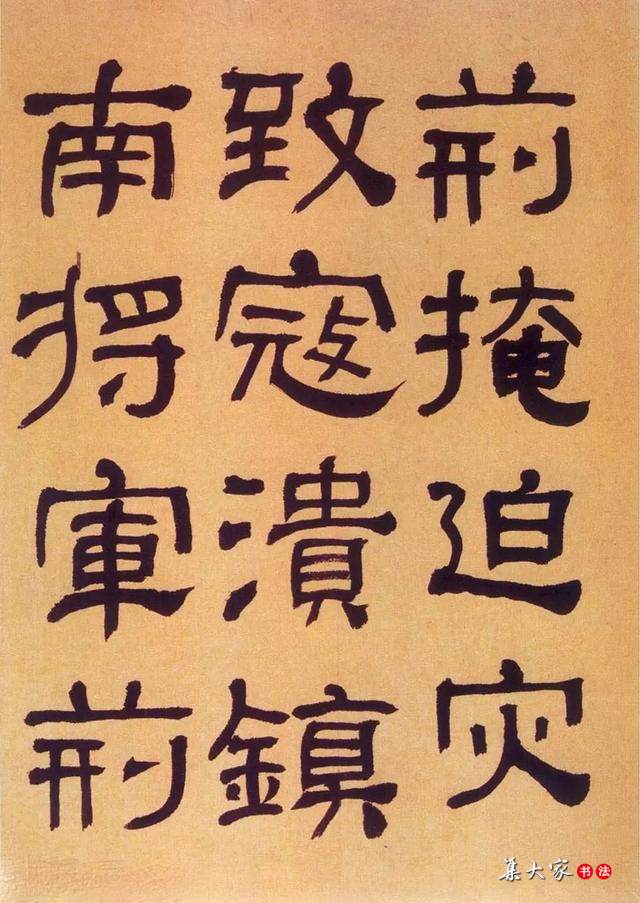 荊掩迫灾
致寇潰鎮
南将軍荊
集大家书法